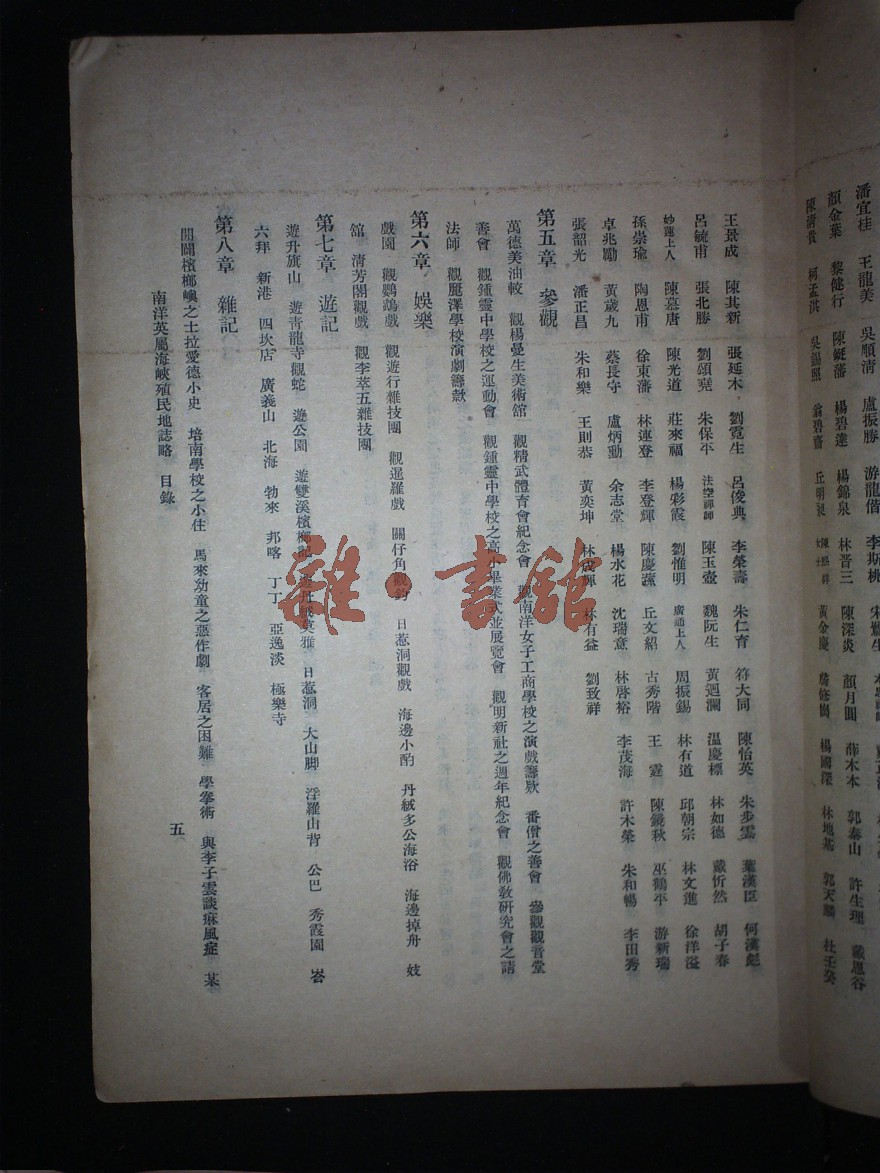 潘宜桂 王龍美 吳順清 盧振勝 游龍偕 李斯桃
顏金葉 黎健行 陳鯎藩 楊碧達 楊錦泉 林晋三 陳深炎 顏月圓 薛木本 郭泰山 許生理 戴恩谷
陳清貴 柯孟淇 吳錫照 翁碧齋 丘明昶 黃金慶 楊國深 林地基 郭天麟 杜壬癸
王景成 陳其新 張延木 劉霓生 呂俊典 李榮壽 朱仁育 符大同 陳怡英 朱步雲 葉漢臣 何漢彪
呂毓甫 張北勝 劉頌堯 朱保平 法空禪師 陳玉壺 魏阮生 黃迴瀾 温慶標 林如德 戴忻然 胡子春
妙蓮上人 陳慕唐 陳光道 莊來福 楊彩霞 劉惟明 廣通上人 周振錫 林有道 邱朝宗 林文進 徐洋溢
孫崇瑜 陶恩甫 徐東藩 林連登 李登輝 陳慶蔬 丘文紹 古秀階 王霆 陳鏡秋 巫鶴平 游新瑞
卓兆勵 黃歲九 蔡長守 盧炳勳 余志堂 楊水花 沈瑞意 林啓裕 李茂海 許木榮 朱和暢 李田秀
張韶光 潘正昌 朱和樂 王則恭 黃奕坤 林成輝 林有益 劉致祥
第五章 參觀
萬德美油較 觀楊曼生美術館 觀精武體育會紀念會 觀南洋女子工商學校之演戲籌欵 番僧之善會 參觀觀音堂
善會 觀鍾靈中學校之運動會 觀鍾靈中學校之高小畢業式並展覽會 觀明新社之週年紀念會 觀佛教研究會之請
法師 觀麗澤學校演劇籌欵
第六章 娛樂
戲園 觀鸚鵡戲 觀遊行雜技團 觀暹羅戲 關仔角觀釣 日惹洞觀戲 海邊小酌 丹絨多公海浴 海邊掉舟 妓
舘 清芳閣觀戲 觀李萃五雜技團
第七章 遊記
遊升旗山 遊青龍寺觀蛇 遊公園 遊雙溪檳榔 遊丹絨莫雅 日惹洞 大山脚 浮羅山背 公巴 秀霞園 峇
六拜 新港 四坎店 廣義山 北海 勃來 邦喀 丁丁 亞逸淡 極樂寺
第八章 雜記
開闢檳榔嶼之士拉愛德小史 培南學校之小住 馬來幼童之惡作劇 客居之困難 學拳術 與李子雲談痳風症 某
南洋英屬海峽殖民地誌略 目錄
五
雜·書舘